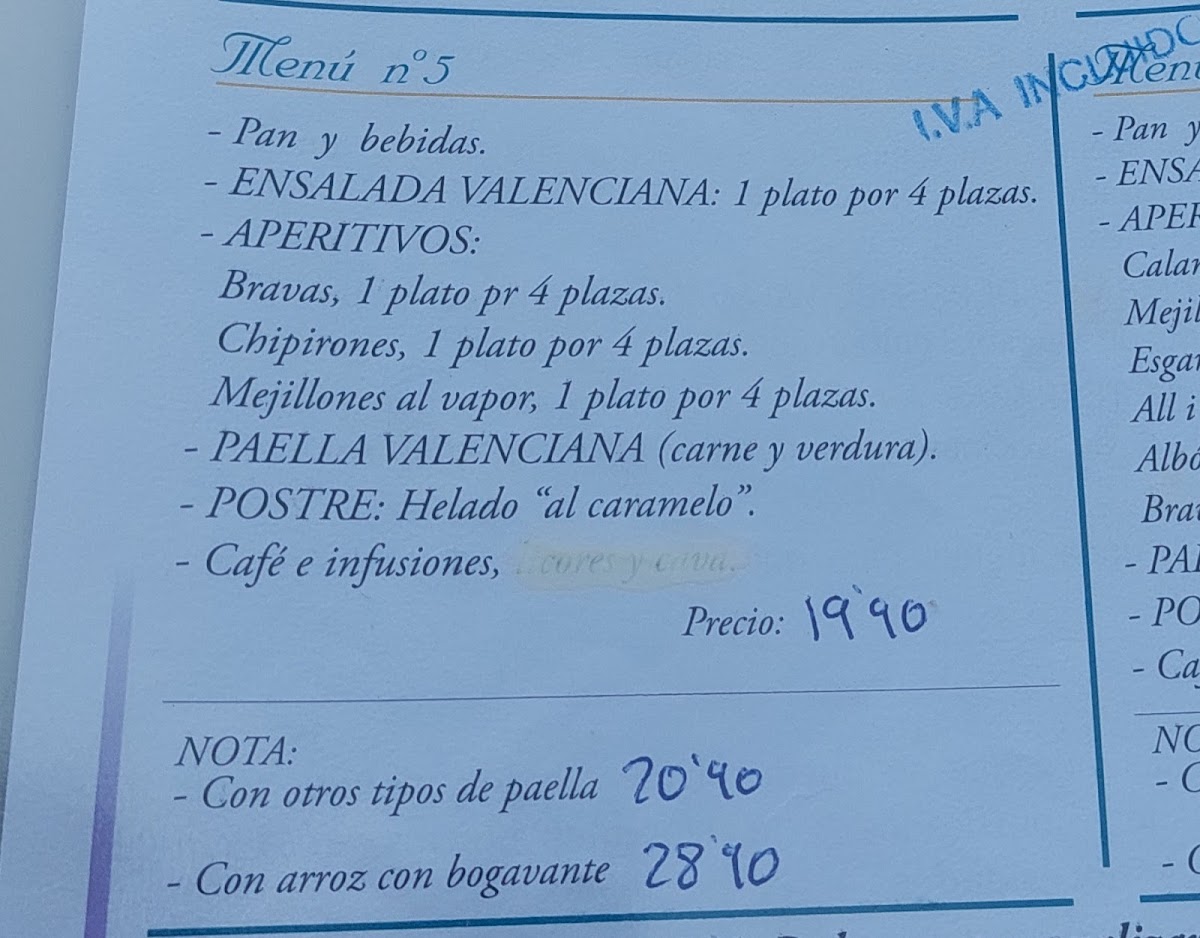 Menú nº5
I.V.A INCLUIDO
- Pan y bebidas.
- ENSALADA VALENCIANA: 1 plato por 4 plazas.
- APERITIVOS:
Bravas, 1 plato pr 4 plazas.
Chipirones, 1 plato por 4 plazas.
Mejillones al vapor, 1 plato por 4 plazas.
- PAELLA VALENCIANA (carne y verdura).
- POSTRE: Helado “al caramelo”.
- Café e infusiones, licores y cava.
Precio: 19'90
NOTA:
- Con otros tipos de paella 20'90
- Con arroz con bogavante 28'90
Menú
- Pan y
- ENSA
- APER
Calar
Mejil
Esgar
All i
Albó
Brav
- PAE
- PO
- Ca
NO
- C
- C